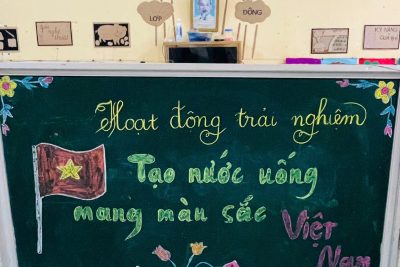 LỚP ĐỒNG
Hoạt động trải nghiệm
Tạo nước uống
mang màu sắc
Việt
Nam